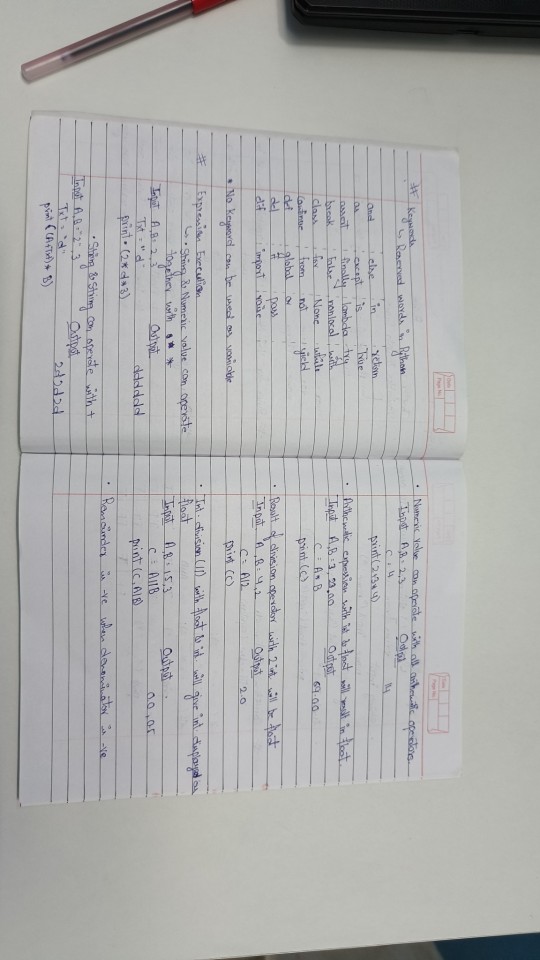 # Keywords
↳ Reserved words in Python
and else in return
as except is True
assert finally lambda try
break False nonlocal with
class for None while
continue from not yield
def global or
del if pass
elif import raise
* No keyword can be used as variable
# Expression Execution
↳ • String & Numeric value can operate
together with *
Input A, B = 2, 3 Output
Txt = "d" dddddd
print (2*d*3)
• String & String can operate with +
Input A, B = "2", 3 Output
Txt = "d" 2d2d2d
print ((A+Txt) * B)
• Numeric value can operate with all arithmetic operators
Input A, B = 2, 3 Output
C = 4 14
print (2+3*4)
• Arithmetic expression with int & float will result in float.
Input A, B = Output
C = A * B
print (C)
• Result of division operator with 2 int will be float
Input A, B = 4, 2 Output
C = A/2 2.0
print (C)
• Int. division (//) with float & int will give int displayed as
float
Input A, B = 1.5, 3 Output
C = A//B 0.0, 0.5
print (C, A/B)
• Remainder is -ve when denominator is -ve